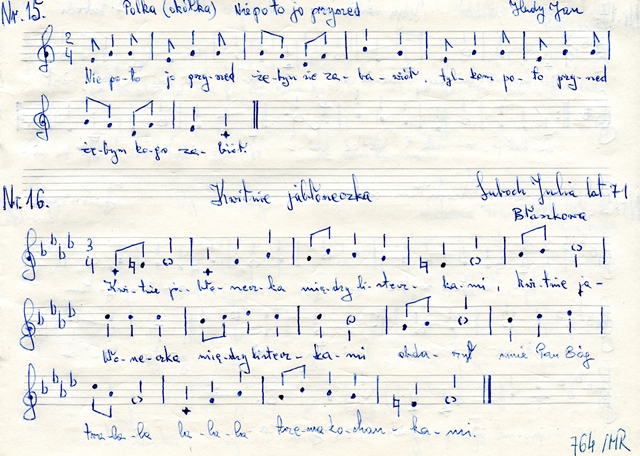 Nr. 15. Polka (skótka) Nie po to jo przysed Hudy Jan
2 4
Nie po-to jo przy-sed ze-bym sie za-ba-wiół, tyl-kom po-to przy-sed
ze-bym ko-go za-biół.
Nr. 16. Kwitnie jabłoneczka Luboch Julia lat 71
Błaszkowa
3 4
Kwi-tnie ja-bło-necz-ka mię-dzy li-stecz-ka-mi, kwi-tnie ja-
bło-ne-czka mię-dzy listecz-ka-mi obda-rzył mnie Pan Bóg
tra-la-la la-la-la trze-ma ko-chan-ka-mi.
764/MR